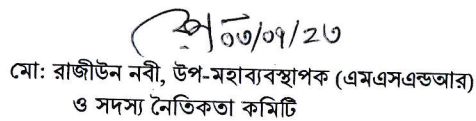 ০৩/০৭/২৩
মো: রাজীউন নবী, উপ-মহাব্যবস্থাপক (এমএসএন্ডআর)
ও সদস্য নৈতিকতা কমিটি